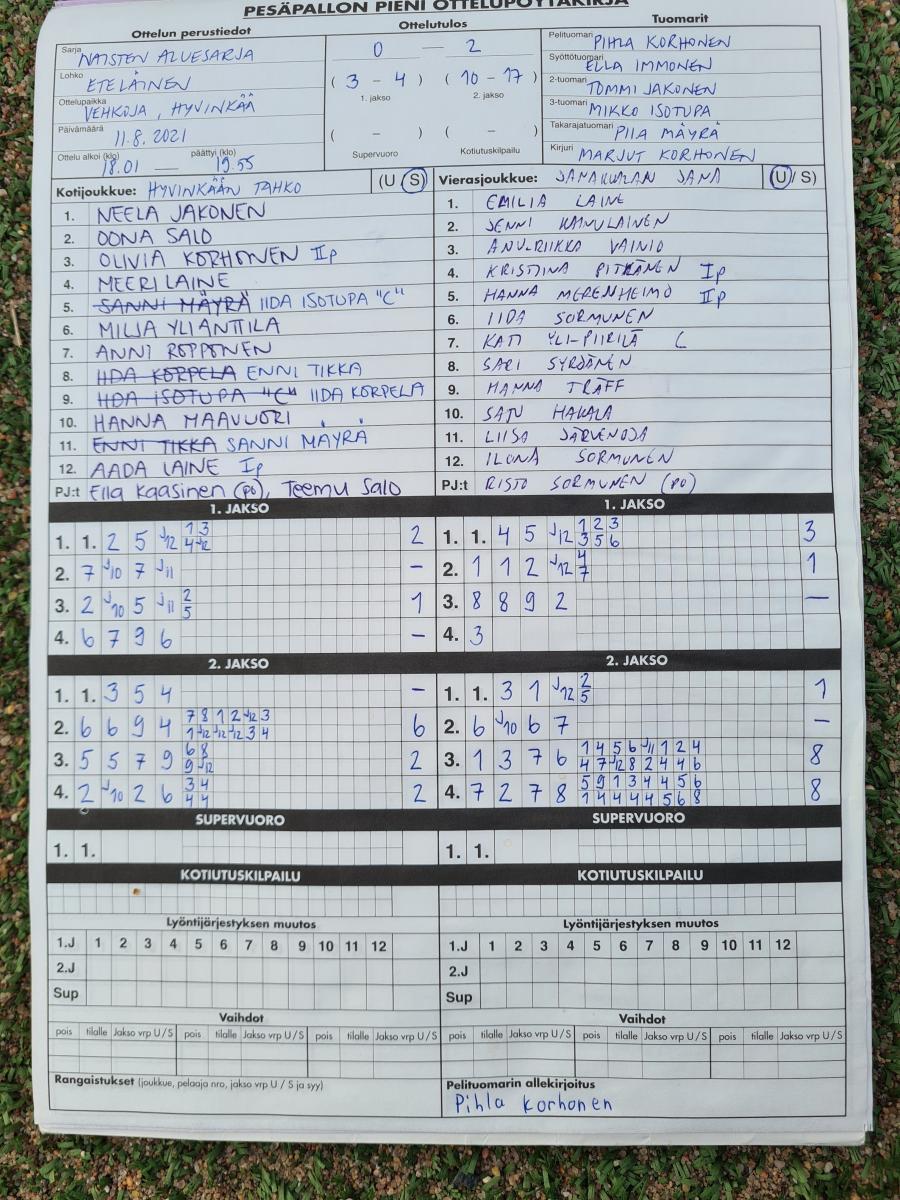 PESÄPALLON PIENI OTTELUPÖYTÄKIRJA
Ottelun perustiedot
Sarja NAISTEN ALUESARJA
Lohko ETELÄINEN
Ottelupaikka VEHKOJA, HYVINKÄÄ
Päivämäärä 11.8. 2021
Ottelu alkoi (klo) 18.01 — päättyi (klo) 19.55
Ottelutulos
0 — 2
( 3 - 4 ) ( 10 - 17 )
1. jakso 2. jakso
( - ) ( - )
Supervuoro Kotiutuskilpailu
Tuomarit
Pelituomari PIHLA KORHONEN
Syöttötuomari ELLA IMMONEN
2-tuomari TOMMI JAKONEN
3-tuomari MIKKO ISOTUPA
Takarajatuomari PIIA MÄYRÄ
Kirjuri MARJUT KORHONEN
Kotijoukkue: HYVINKÄÄN TAHKO (U S)
1. NEELA JAKONEN
2. OONA SALO
3. OLIVIA KORHONEN IIp
4. MEERI LAINE
5. SANNI MÄYRÄ IIDA ISOTUPA "C"
6. MILJA YLIANTTILA
7. ANNI ROPPONEN
8. IIDA KORPELA ENNI TIKKA
9. IIDA ISOTUPA "C" IIDA KORPELA
10. HANNA MAAVUORI
11. ENNI TIKKA SANNI MÄYRÄ
12. AADA LAINE Ip
PJ:t Ella Kaasinen (po), Teemu Salo
Vierasjoukkue: JANAKKALAN JANA (U / S)
1. EMILIA LAINE
2. JENNI KANULAINEN
3. ANU-RIIKKA VAINIO
4. KRISTIINA PITKÄNEN Ip
5. HANNA MERENHEIMO IIp
6. IIDA SORMUNEN
7. KATI YLI-PIIRILÄ C
8. SARI SYRJÄNEN
9. HANNA TRÄFF
10. SATU HAKALA
11. LIISA JÄRVENOJA
12. ILONA SORMUNEN
PJ:t RISTO SORMUNEN (PO)
1. JAKSO
1. 1. 2 5 J12 1 3 2
4 J12
2. 7 J10 7 J11 -
3. 2 J10 5 J11 2 1
5
4. 6 7 9 6 -
1. JAKSO
1. 1. 4 5 J12 1 2 3 3
3 5 6
2. 1 1 2 J12 4 1
7
3. 8 8 9 2 —
4. 3
2. JAKSO
1. 1. 3 5 4 -
2. 6 6 9 4 7 8 1 2 J12 3 6
1 J12 J12 J12 3 4
3. 5 5 7 9 6 8 2
9 J12
4. 2 J10 2 6 3 4 2
4 4
2. JAKSO
1. 1. 3 1 J12 2 1
5
2. 6 J10 6 7 -
3. 1 3 7 6 1 4 5 6 J11 1 2 4 8
4 7 J12 8 2 4 4 6
4. 7 2 7 8 5 9 1 3 4 4 5 6 8
1 4 4 4 4 5 6 8
SUPERVUORO
1. 1.
SUPERVUORO
1. 1.
KOTIUTUSKILPAILU
KOTIUTUSKILPAILU
Lyöntijärjestyksen muutos
1.J 1 2 3 4 5 6 7 8 9 10 11 12
2.J
Sup
Lyöntijärjestyksen muutos
1.J 1 2 3 4 5 6 7 8 9 10 11 12
2.J
Sup
Vaihdot
pois tilalle Jakso vrp U / S pois tilalle Jakso vrp U / S pois tilalle Jakso vrp U / S
Vaihdot
pois tilalle Jakso vrp U / S pois tilalle Jakso vrp U / S pois tilalle Jakso vrp U / S
Rangaistukset (joukkue, pelaaja nro, jakso vrp U / S ja syy)
Pelituomarin allekirjoitus
Pihla Korhonen